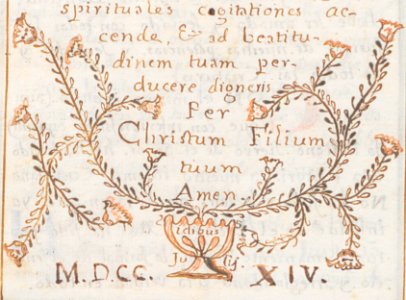 spirituales cogitationes ac-
cende, & ad beatitu-
dinem tuam per
ducere digneris
Per
Christum Filium
tuum
Amen
idibus
Ju lij
M.DCC. XIV.